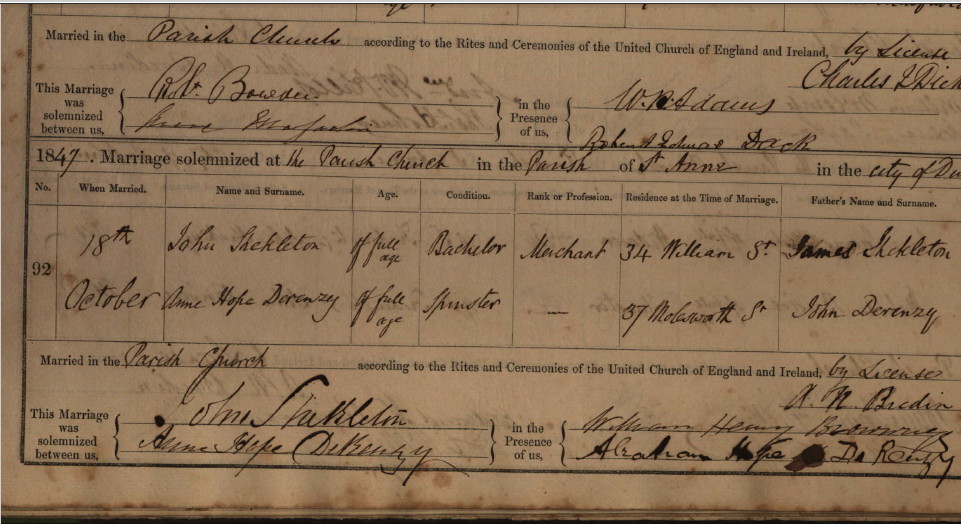 Married in the Parish Church according to the Rites and Ceremonies of the United Church of England and Ireland, by License
Charles
This Marriage was solemnized between us, Robt. Bowden
in the Presence of us, W. R. Adams
Robert Edward Dack
1847. Marriage solemnized at the Parish Church in the Parish of St. Anne in the city of Du
No. When Married. Name and Surname. Age. Condition. Rank or Profession. Residence at the Time of Marriage. Father's Name and Surname.
92 18th John Shekleton Of full age Bachelor Merchant 34 William St. James Shekleton
October Anne Hope Derenzy Of full age Spinster — 37 Molesworth St John Derenzy
Married in the Parish Church according to the Rites and Ceremonies of the United Church of England and Ireland, by License
Bredin
This Marriage was solemnized between us, John Shekleton
Anne Hope DeRenzy
in the Presence of us, William Henry
Abraham Hope De Renzy